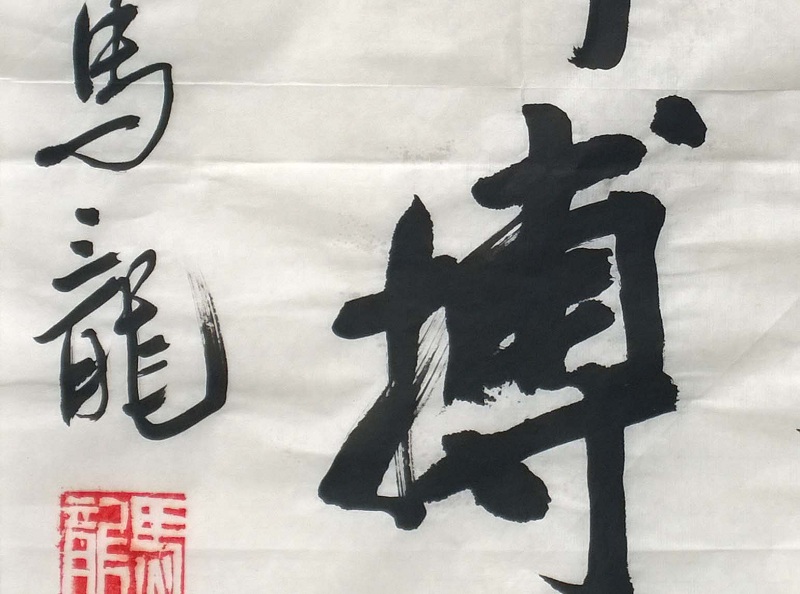 搏
馬龍
馬龍